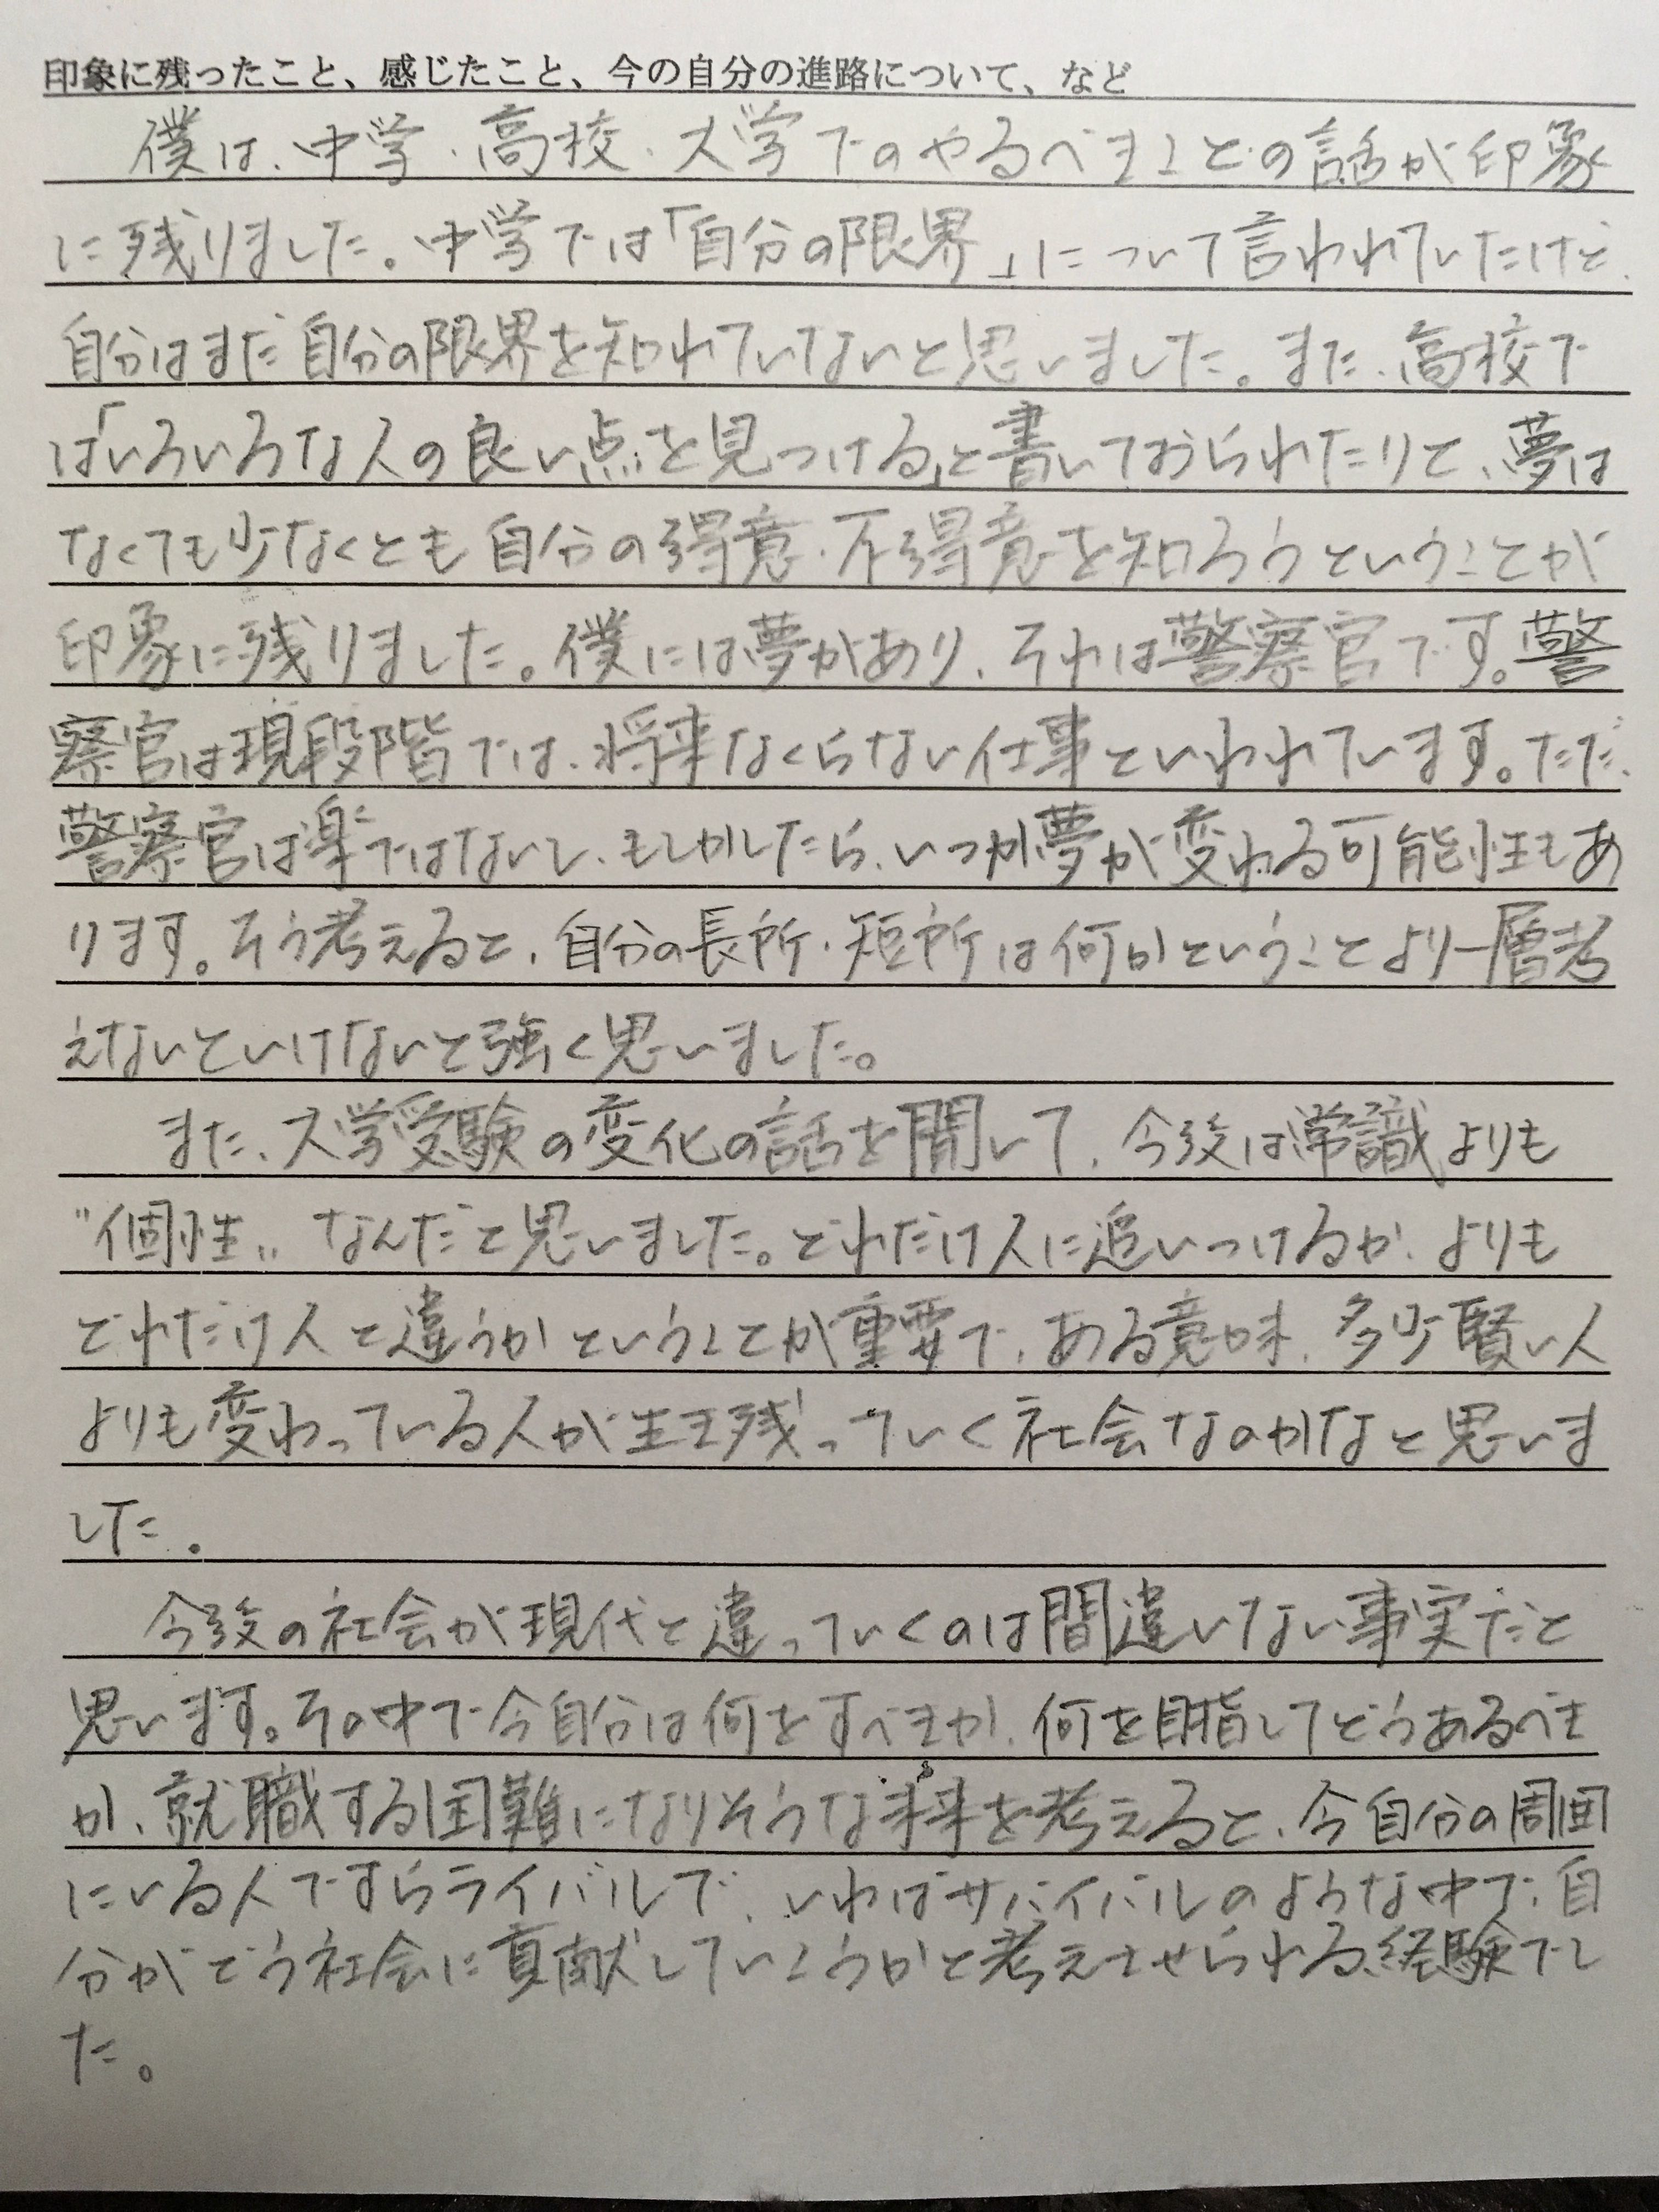 印象に残ったこと、感じたこと、今の自分の進路について、など
僕は、中学、高校、大学でのやるべきことの話が印象
に残りました。中学では「自分の限界」について言われていたけど、
自分はまだ自分の限界を知れていないと思いました。また、高校で
は「いろいろな人の良い点を見つける」と書いておられたりと、夢は
なくても少なくとも自分の得意、不得意を知ろうということが
印象に残りました。僕には夢があり、それは警察官です。警
察官は現段階では、将来なくらない仕事といわれています。ただ、
警察官は楽ではないし、もしかしたら、いつか夢が変わる可能性もあ
ります。そう考えると、自分の長所、短所は何かということより一層考
えないといけないと強く思いました。
また、大学受験の変化の話を聞いて、今後は常識よりも
"個性"なんだと思いました。どれだけ人に追いつけるか、よりも
どれだけ人と違うかということが重要で、ある意味、多少賢い人
よりも変わっている人が生き残っていく社会なのかなと思いま
した。
今後の社会が現代と違っていくのは間違いない事実だと
思います。その中で今自分は何をすべきか、何を目指してどうあるべき
か、就職する困難になりそうな未来を考えると、今自分の周囲
にいる人ですらライバルで、いわばサバイバルのような中で、自
分がどう社会に貢献していこうかと考えさせられる経験でし
た。